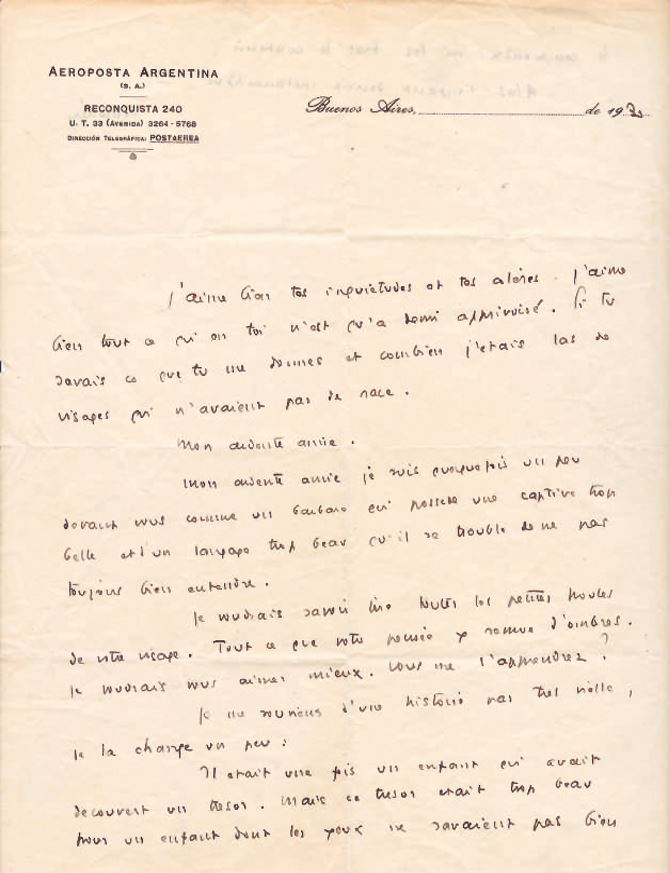 AEROPOSTA ARGENTINA
(S. A.)
RECONQUISTA 240
U. T. 33 (AVENIDA) 3264 - 5768
DIRECCIÓN TELEGRÁFICA: POSTAEREA
Buenos Aires, de 1930
j'aime bien tes inquietudes et tes colères. j'aime
bien tout ce qui en toi n'est qu'a demi apprivoisé. Si tu
savais ce que tu me donnes et combien j'etais las de
visages qui n'avaient pas de race.
Mon ardente amie.
Mon ardente amie je suis quelquefois un peu
devant vous comme un barbare qui possede une captive trop
belle et d'un langage trop beau qu'il se trouble de ne pas
toujours bien entendre.
Je voudrais savoir lire toutes les petites houles
de votre visage. Tout ce que votre pensée y remue d'ombres.
Je voudrais vous aimer mieux. Vous me l'apprendrez ?
Je me souviens d'une histoire pas tres vieille,
je la change un peu :
Il etait une fois un enfant qui avait
decouvert un tresor. Mais ce tresor etait trop beau
pour un enfant dont les yeux ne savaient pas bien